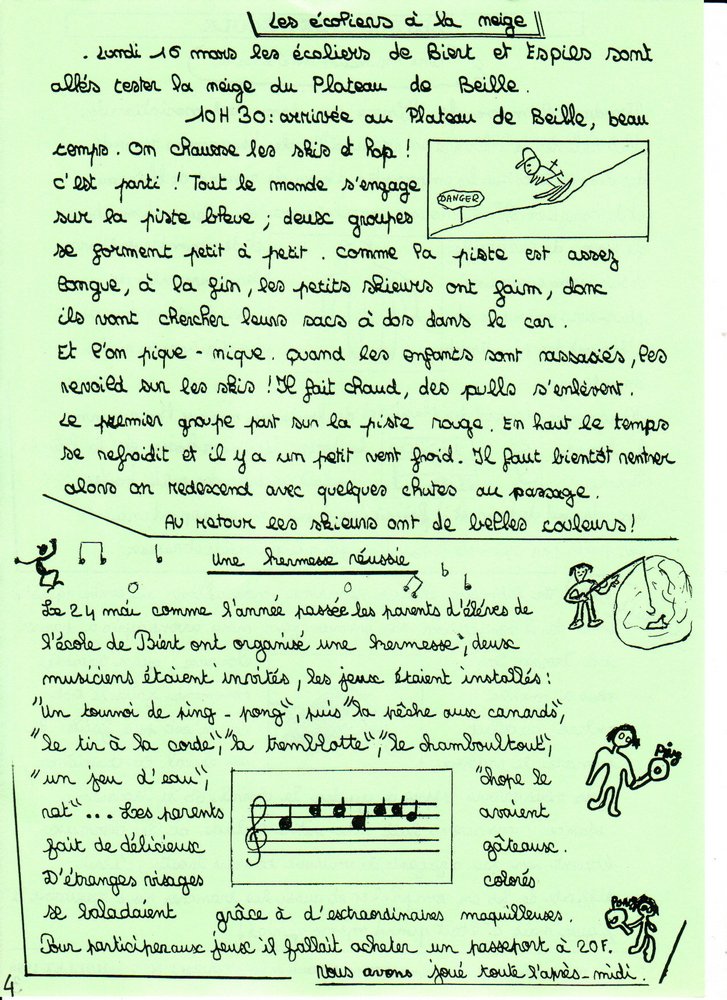 Les écoliers à la neige
. Lundi 16 mars les écoliers de Biert et Espies sont
allés tester la neige du Plateau de Beille.
10H30: arrivée au Plateau de Beille, beau
temps. On chausse les skis et hop !
c'est parti ! Tout le monde s'engage
DANGER
sur la piste bleue ; deux groupes
se forment petit à petit. comme la piste est assez
longue, à la fin, les petits skieurs ont faim, donc
ils vont chercher leurs sacs à dos dans le car.
Et l'on pique-nique. Quand les enfants sont rassasiés, les
revoilà sur les skis ! Il fait chaud, des pulls s'enlèvent.
Le premier groupe part sur la piste rouge. En haut le temps
se refroidit et il y a un petit vent froid. Il faut bientôt rentrer
alors on redescend avec quelques chutes au passage.
Au retour les skieurs ont de belles couleurs !
Une kermesse réussie
Le 24 mai comme l'année passée les parents d'éléves de
l'école de Biert ont organisé une kermesse, deux
musiciens étaient invités, les jeux étaient installés :
"Un tournoi de ping-pong", puis "la pêche aux canards",
"le tir à la corde", "la tremblotte", "le chamboultout",
Ping
"un jeu d'eau", "chope le
rat"... Les parents avaient
fait de délicieux gâteaux.
D'étranges visages colorés
se baladaient grâce à d'extraordinaires maquilleuses.
Pong
Pour participer aux jeux il fallait acheter un passeport à 20F.
Nous avons joué toute l'après-midi.
4